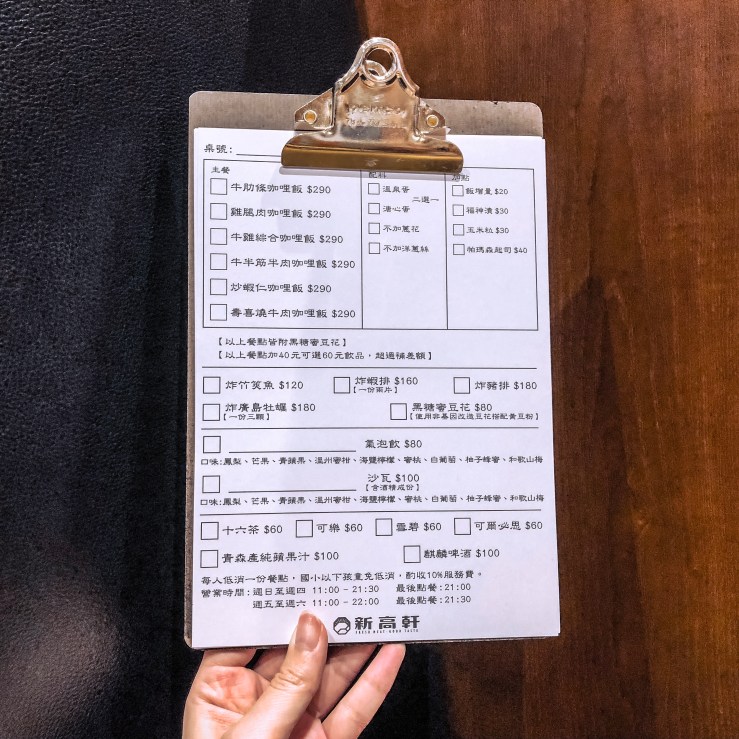 桌號:
主餐
牛肋條咖哩飯 $290
雞腿肉咖哩飯 $290
牛雞綜合咖哩飯 $290
牛半筋半肉咖哩飯 $290
炒蝦仁咖哩飯 $290
壽喜燒牛肉咖哩飯 $290
配料
溫泉蛋
二選一
溏心蛋
不加蔥花
不加洋蔥絲
加點
飯增量 $20
福神漬 $30
玉米粒 $30
帕瑪森起司 $40
【以上餐點皆附黑糖蜜豆花】
【以上餐點加40元可選60元飲品,超過補差額】
炸竹筴魚 $120
炸蝦排 $160
【一份兩片】
炸豬排 $180
炸廣島牡蠣 $180
【一份三顆】
黑糖蜜豆花 $80
【使用非基因改造豆花搭配黃豆粉】
氣泡飲 $80
口味:鳳梨、芒果、青蘋果、溫州蜜柑、海鹽檸檬、蜜桃、白葡萄、柚子蜂蜜、和歌山梅
沙瓦 $100
【含酒精成份】
口味:鳳梨、芒果、青蘋果、溫州蜜柑、海鹽檸檬、蜜桃、白葡萄、柚子蜂蜜、和歌山梅
十六茶 $60
可樂 $60
雪碧 $60
可爾必思 $60
青森產純蘋果汁 $100
麒麟啤酒 $100
每人低消一份餐點,國小以下孩童免低消,酌收10%服務費。
營業時間:週日至週四 11:00 - 21:30 最後點餐:21:00
週五至週六 11:00 - 22:00 最後點餐:21:30
新高軒
FRESH MEAT·GOOD TASTE